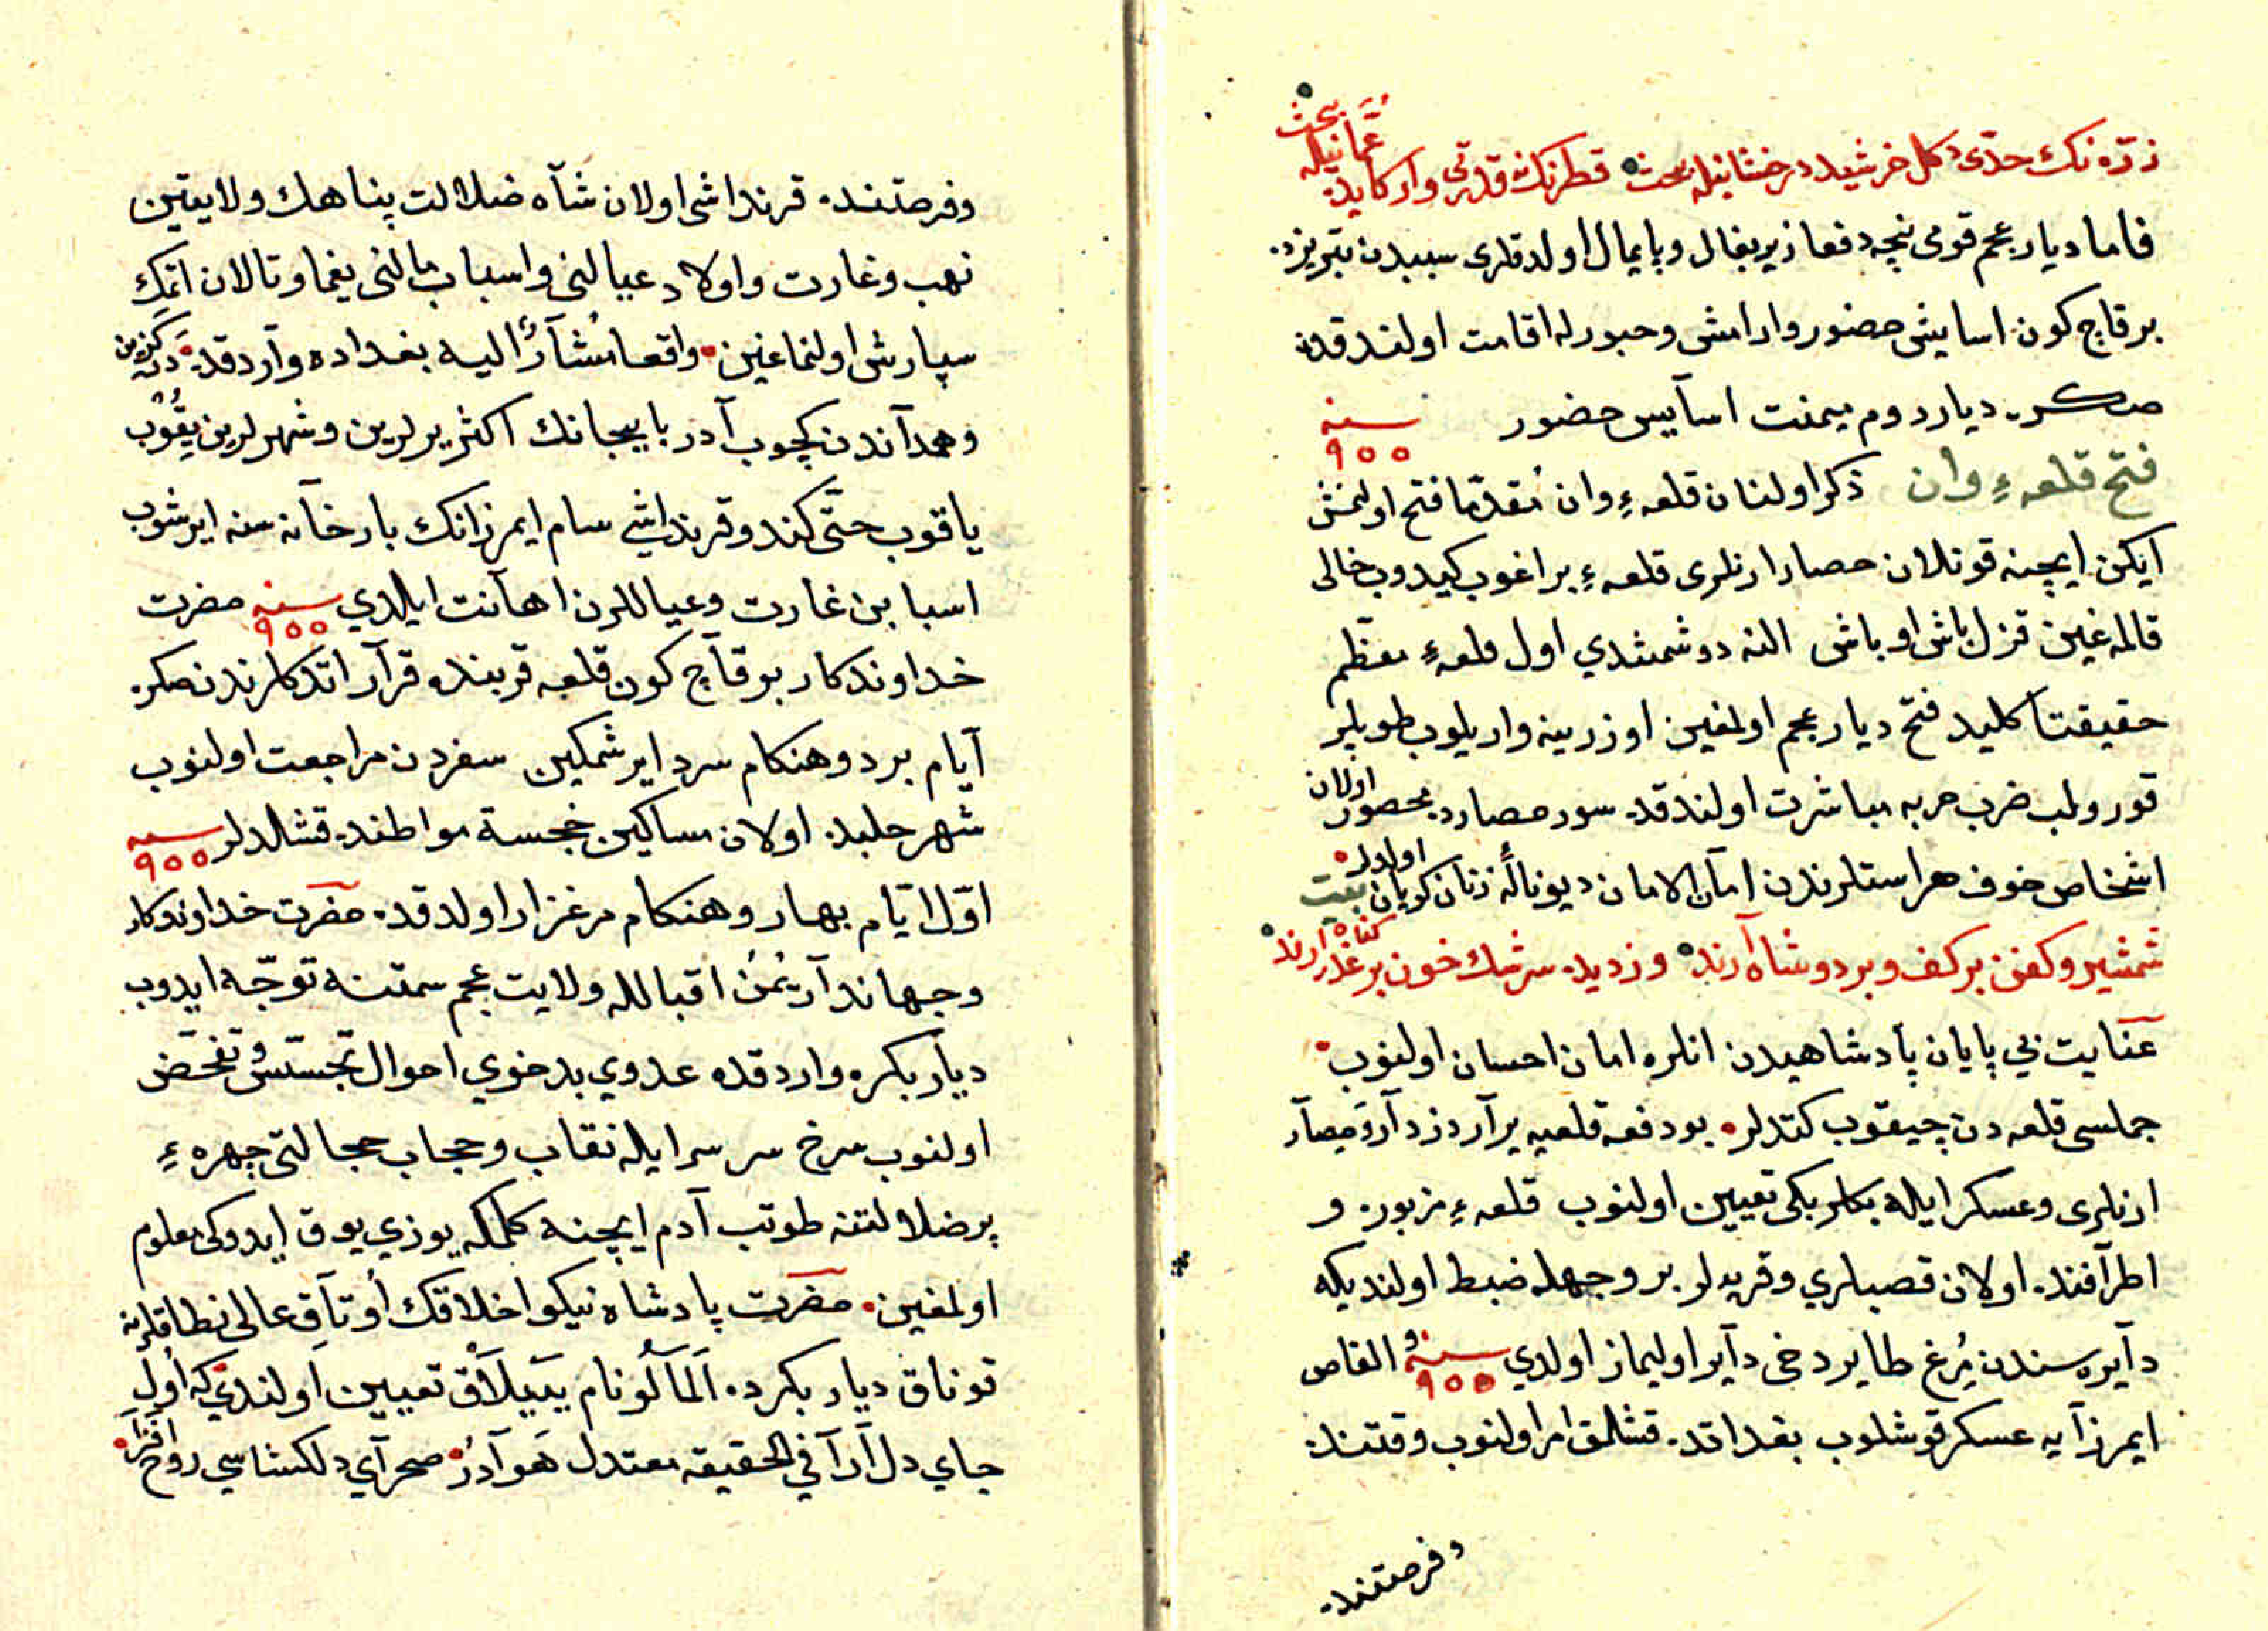 ذرّه نك حدّی دكل خرشید درخشانیله بحث قطره‌نك نه قدرتی وار كایده عمّانیله بحث
فاما دیار عجم قومی نیچه دفعا زیر بغال و پایمال اولدقلری سببدن تبریزده
برقاچ كون اسایش حضور وارامش وحبورله اقامت اولندقدن
صكره دیار روم میمنت اسآیس حضور سنه ٩٥٥
فتح قلعهٔ وان ذكر اولنان قلعهٔ وان مُقدّما فتح اولنمش
ایكن ایچنه قونلان حصار ارنلری قلعهٔ براغوب كیدوب خالی
قالمه‌غین قزل باش اوباش النه دوشمشدي اول قلعهٔ معظّم
حقیقتا كلید فتح دیار عجم اولمغین اوزرینه واریلوب طوپلر
قورولب ضرب حربه مباشرت اولندقده سور حصارده محصور اولان
اشخاص خوف هراستلرندن امان الامان دیو نالهٔ زنان كریان اولدلر بیت
شمشیر وكفن بر كف وبر دوش آرند وز دیده سرشك خون بر عذر كناه آرند
عنایت بي پایان پادشاهیدن انلره امان احسان اولنوب
جملسی قلعه دن چیقوب كتدلر بو دفعه قلعیه یرآر دزدآر وحصآر
ارنلری وعسكر ایله بكلربكی تعیین اولنوب قلعهٔ مزبوره و
اطرآفنده اولان قصبلري وقریه‌لر بر وجهله ضبط اولندیكه
دآیره سندن مُرغ طایر دخی دآیر اولیماز اولدي سنه ٩٥٥ القاص
ایمرزآیه عسكر قوشلوب بغداتده قشلمق امر اولنوب وقتنده
وفرصتنده
وفرصتنده قرنداشی اولان شآه ضلالت پناهك ولایتین
نهب وغارت واولاد عیالنی واسباب مالنی یغما وتالان اتمك
سپارش اولنماغین واقعا مُشآرٌ الیه بغداده وآردقده دركزین
وهمدآندن كچوب آدربایيجانك اكثر یرلرین وشهرلرین یقوب
یاقوب حتّی كندو قرنداشي سام ایمرزانك بارخآنه سنه ایرشوب
اسبابن غارت وعیاللرن اهآنت ایلدي سنه ٩٥٥ حضرت
خداوندكار بر قآچ كون قلعه قربنده قرآر اتدكلرندنصكره
آیام برد وهنكام سرد ایرشمكین سفردن مراجعت اولنوب
شهر حلبده اولان مساكین خجسته مواطنده قشلدلر سنه ٩٥٥
اوّل ایّام بهار وهنكام مرغزار اولدقده حضرت خداوندكار
وجهاندآر یُمن اقبالله ولایت عجم سمتنه توجّه ایدوب
دیآر بكره واردقده عدوي بدخوي احوال تجسّس وتفحّص
اولنوب سرخ سر سر ایله نقاب وحجاب حجالتی چهرهٔ
پر ضلالتنه طوتب آدم ایچنه كلمكه یوزي یوق ایدوكی معلوم
اولمغین حضرت پادشاه نیكو اخلاقك اُوتآق عالی نطاقلرینه
قوناق دیار بكرده اَلمآلُو نام ییلآق تعیین اولندي كه اول
جاي دل آرآ في الحقیقه معتدل هَوآدُر صحرآي دلكشاسي روح افزآ